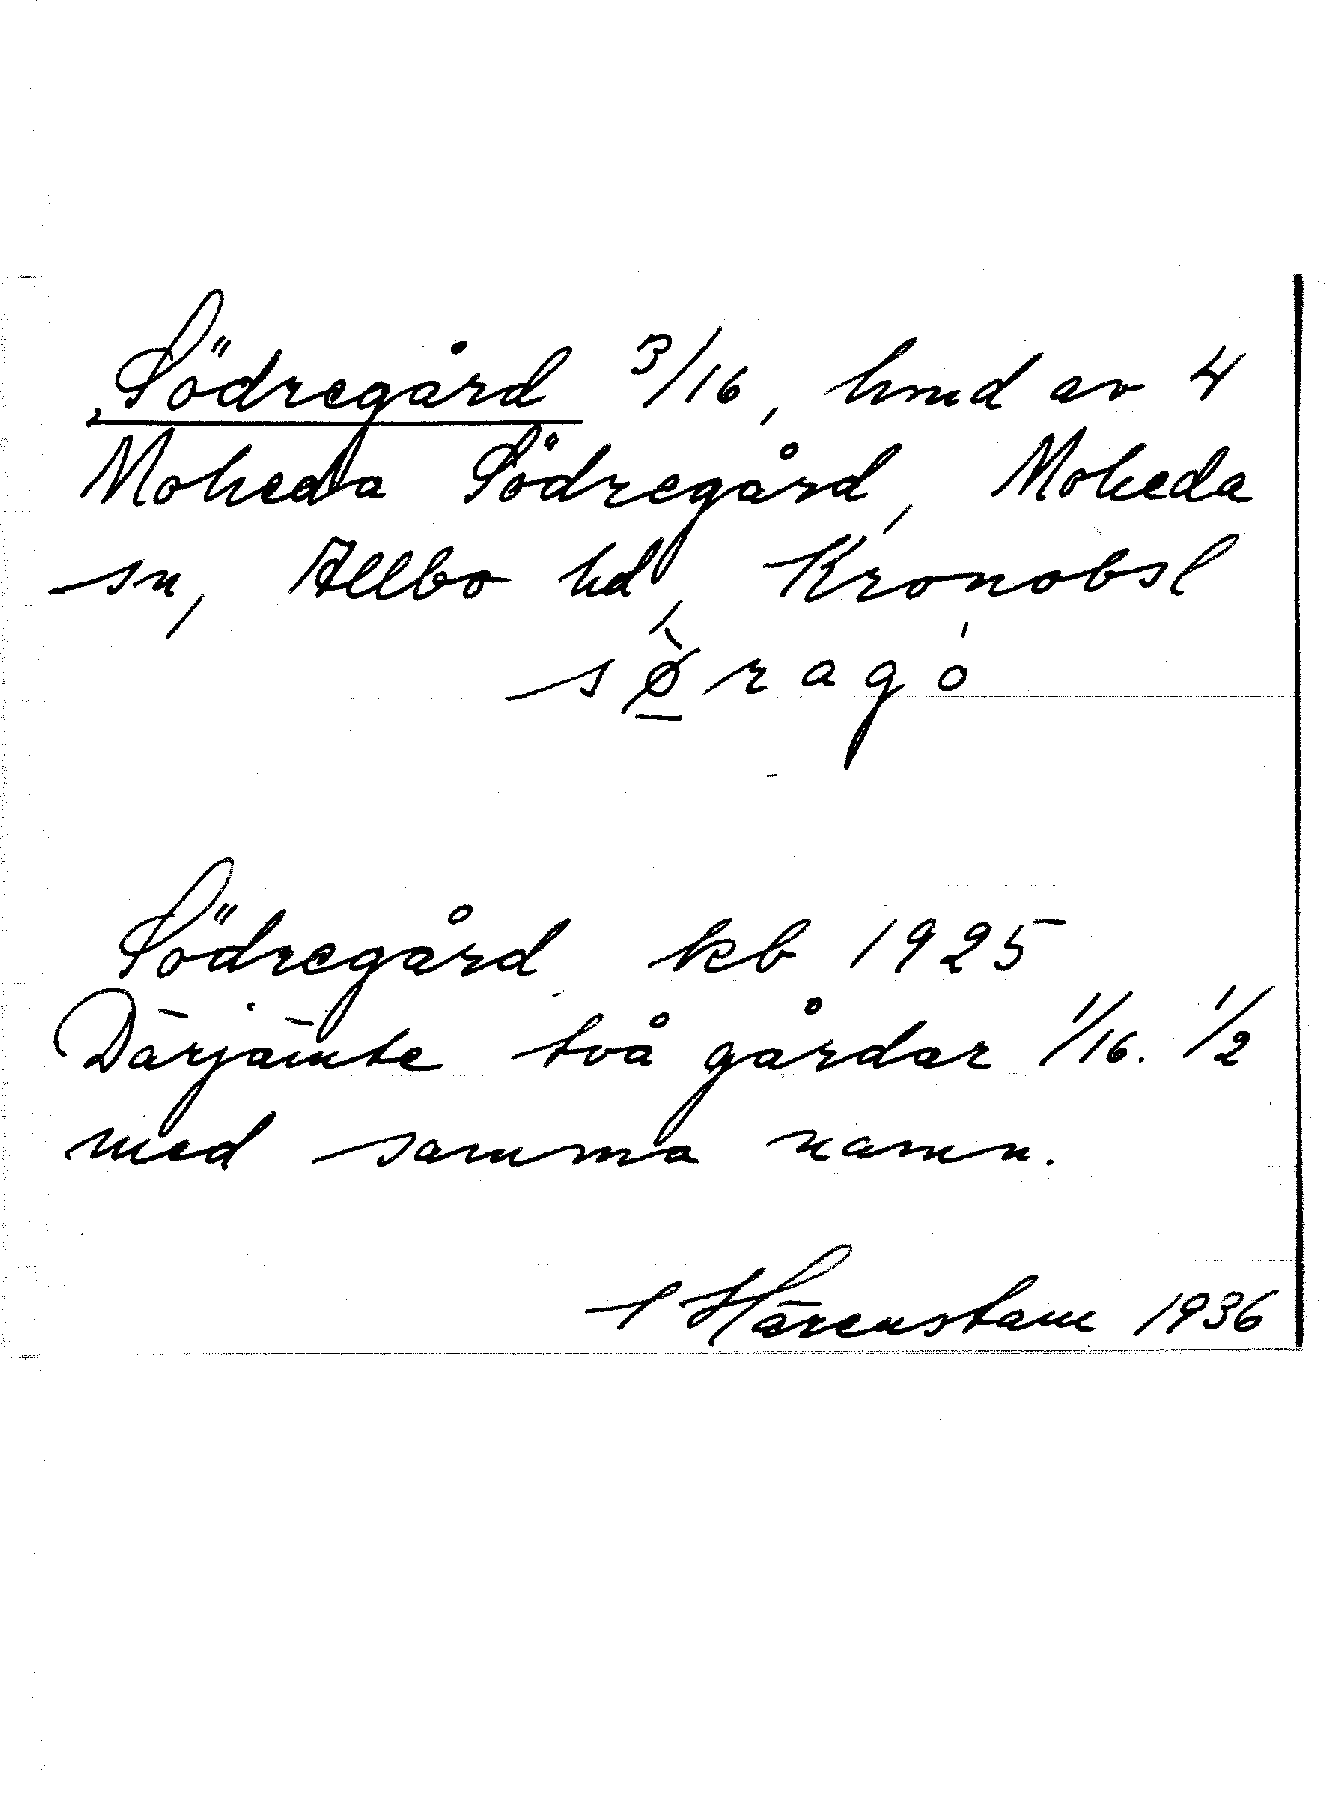 Södregård 3/16, hmd av 4
Moheda Södregård, Moheda
sn, Allbo hd, Kronobsl
sø̀ragó
Södregård kb 1925
Därjämte två gårdar 1/16. 1/2
med samma namn.
I Härenstam 1936